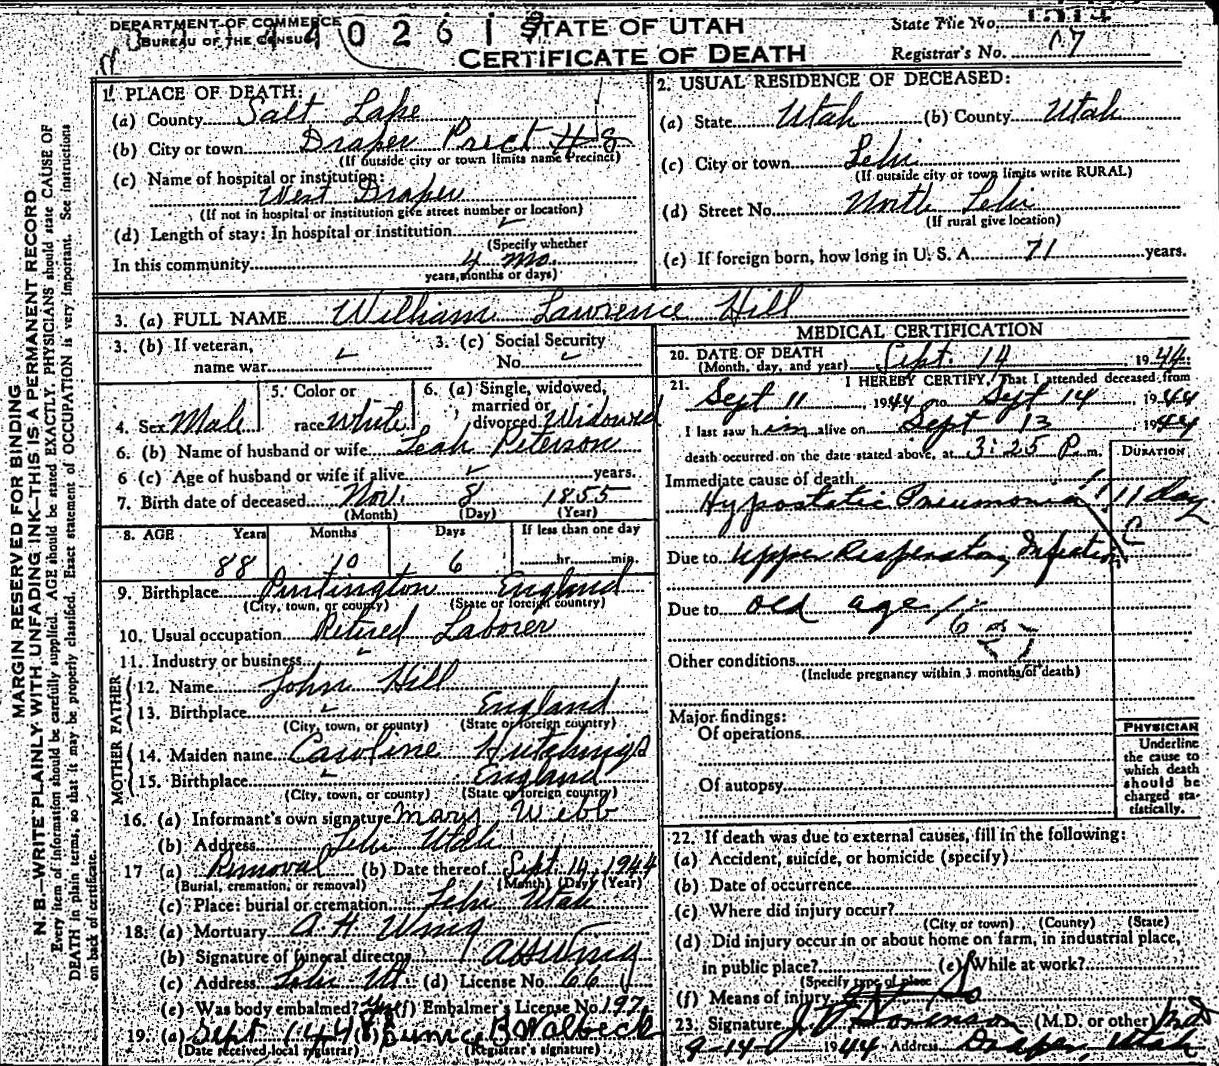 DEPARTMENT OF COMMERCE
BUREAU OF THE CENSUS
STATE OF UTAH
CERTIFICATE OF DEATH
State File No.
Registrar's No.
MARGIN RESERVED FOR BINDING
N. B.—WRITE PLAINLY WITH UNFADING INK—THIS IS A PERMANENT RECORD
Every item of information should be carefully supplied. AGE should be stated EXACTLY. PHYSICIANS should state CAUSE OF
DEATH in plain terms, so that it may be properly classified. Exact statement of OCCUPATION is very important. See instructions
on back of certificate.
1. PLACE OF DEATH:
(a) County Salt Lake
(b) City or town Draper Prect # 8
(If outside city or town limits name Precinct)
(c) Name of hospital or institution:
West Draper
(If not in hospital or institution give street number or location)
(d) Length of stay: In hospital or institution
(Specify whether
In this community 4 mo.
years, months or days)
2. USUAL RESIDENCE OF DECEASED:
(a) State Utah (b) County Utah
(c) City or town Lehi
(If outside city or town limits write RURAL)
(d) Street No. North Lehi
(If rural give location)
(e) If foreign born, how long in U. S. A. 71 years.
3. (a) FULL NAME William Lawrence Hill
3. (b) If veteran,
name war
3. (c) Social Security
No.
4. Sex Male
5. Color or
race White
6. (a) Single, widowed,
married or
divorced Widowed
6. (b) Name of husband or wife Leah Peterson
6 (c) Age of husband or wife if alive years.
7. Birth date of deceased Nov. 8 1855
(Month) (Day) (Year)
8. AGE Years Months Days If less than one day
88 10 6 hr. min.
9. Birthplace England
(City, town, or county) (State or foreign country)
10. Usual occupation Retired Laborer
11. Industry or business
FATHER
12. Name John Hill
13. Birthplace England
(City, town, or county) (State or foreign country)
MOTHER
14. Maiden name Caroline
15. Birthplace England
(City, town, or county) (State or foreign country)
16. (a) Informant's own signature Mary Webb
(b) Address Lehi Utah
17 (a) Removal (b) Date thereof Sept. 14, 1944
(Burial, cremation, or removal) (Month) (Day) (Year)
(c) Place: burial or cremation Lehi Utah
18. (a) Mortuary A. H. Wing
(b) Signature of funeral director
(c) Address Lehi Ut. (d) License No. 66
(e) Was body embalmed? Yes (f) Embalmer's License No. 197
19. (a) Sept 14 44 (b) Eunice B Walbeck
(Date received local registrar) (Registrar's signature)
MEDICAL CERTIFICATION
20. DATE OF DEATH Sept. 14 1944
(Month, day, and year)
21. I HEREBY CERTIFY, That I attended deceased from
Sept 11, 1944 to Sept 14 1944
I last saw him alive on Sept 13 1944
death occurred on the date stated above, at 3:25 P. m.
DURATION
Immediate cause of death
Hypostatic Pneumonia
Due to Upper Respiratory Infection
Due to old age
Other conditions
(Include pregnancy within 3 months of death)
Major findings:
Of operations
Of autopsy
PHYSICIAN
Underline
the cause to
which death
should be
charged sta-
tistically.
22. If death was due to external causes, fill in the following:
(a) Accident, suicide, or homicide (specify)
(b) Date of occurrence
(c) Where did injury occur?
(City or town) (County) (State)
(d) Did injury occur in or about home on farm, in industrial place,
in public place? (e) While at work?
(Specify type of place
(f) Means of injury
23. Signature Sorenson (M.D. or other) Md
9-14- 1944 Address Draper, Utah